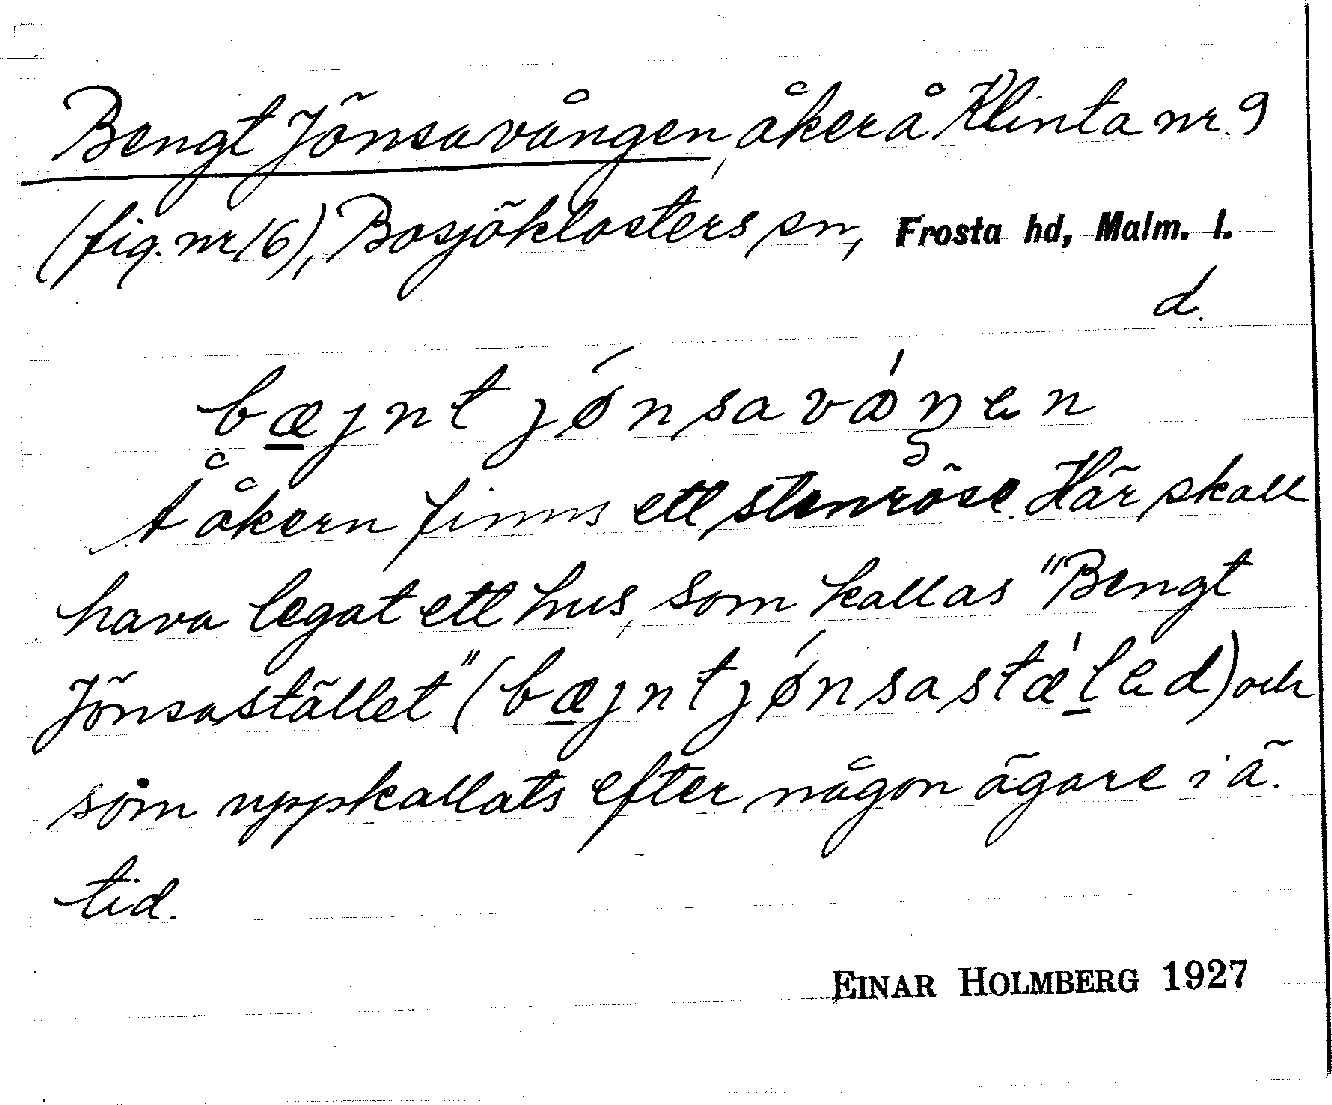 Bengt Jönsavången, åker å Klinta nr 9
(fig. nr 16), Bosjöklosters sn, Frosta hd, Malm. l.
d.
bæjnt jǿnsavåŋen
Å åkern finns ett stenröse. Här skall
hava legat ett hus, som kallas "Bengt
Jönsastället" (bæjnt jǿnsastæled) och
som uppkallats efter någon ägare i ä.
tid.
EINAR HOLMBERG 1927